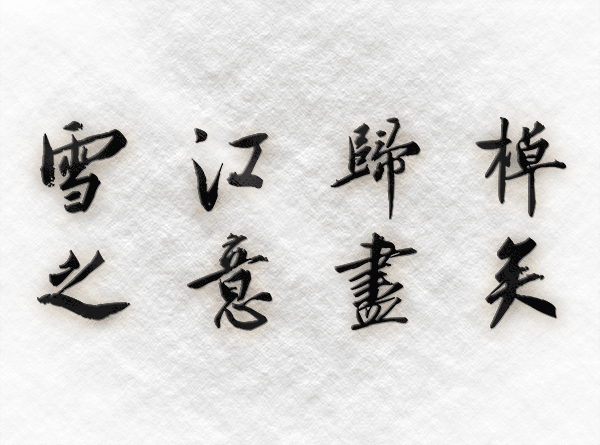 雪江歸棹
之意盡矣